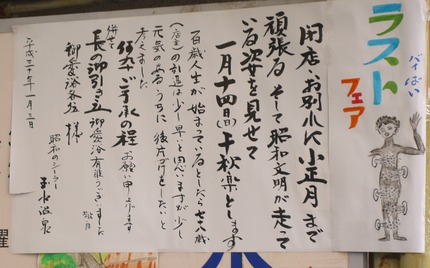 バイばい
ラスト
フェア
閉店・お別れ小正月まで
頑張る そして昭和文明が走って
いる姿を見せて
一月十四(日)千秋楽とします
百歳人生が始まっているとしたら七八歳
(店主)の引退は少し早いと思いますが少し
元気の有るうちに後片づけをしたいと
考えました
何卒ご了承の程お願い申し上げます
併せて
長の御引き立御愛浴有難うございました
敬白
御愛浴各位様
昭和のシーラー
玉水温泉
平成三十年一月三日